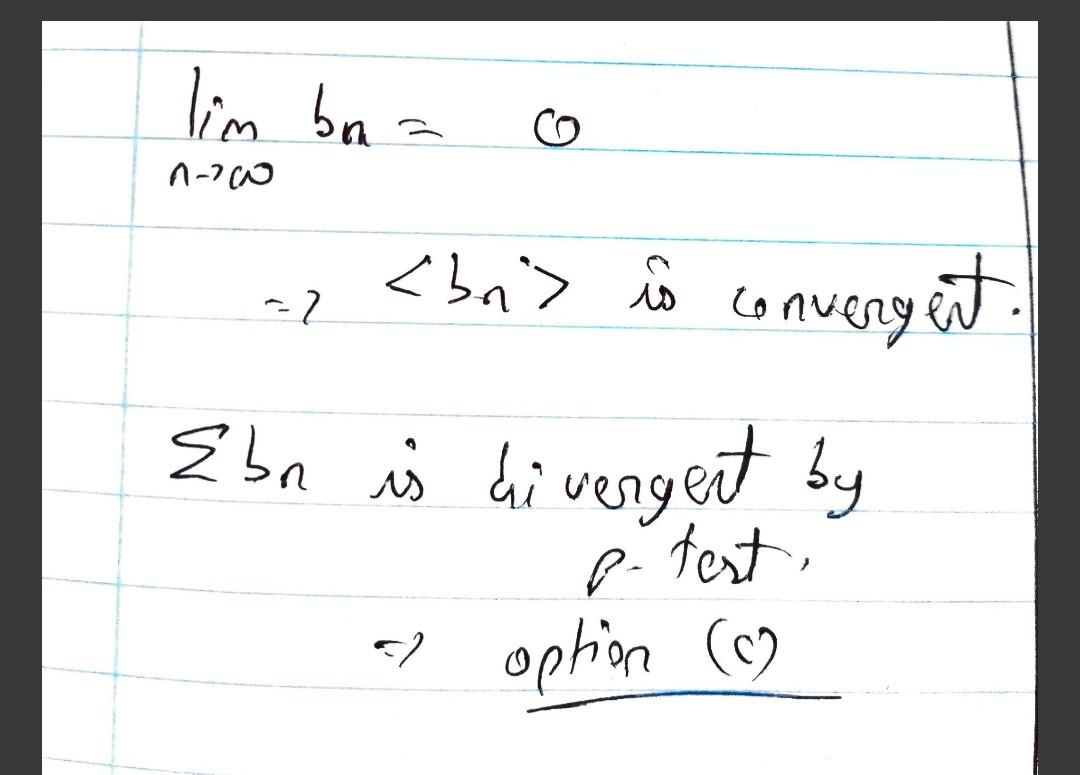 lim bn = 0
n->∞
=> <bn> is convergent.
Σbn is divergent by
p-test.
=> option (c)